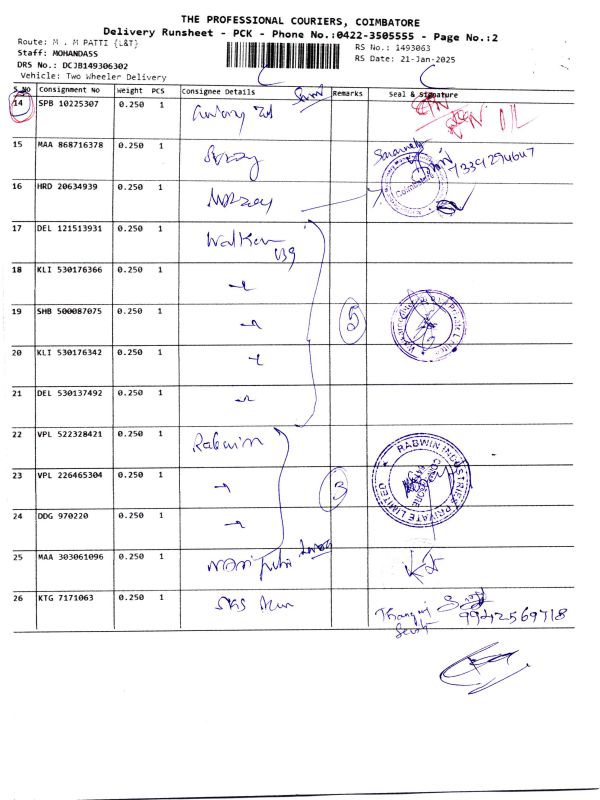 THE PROFESSIONAL COURIERS, COIMBATORE
Delivery Runsheet - PCK - Phone No.:0422-3505555 - Page No.:2
Route: M . M PATTI {L&T}
RS No.: 1493063
Staff: MOHANDASS
RS Date: 21-Jan-2025
DRS No.: DCJB149306302
Vehicle: Two Wheeler Delivery
S No Consignment No Weight PCS Consignee Details Remarks Seal & Signature
14 SPB 10225307 0.250 1
15 MAA 868716378 0.250 1
16 HRD 20634939 0.250 1
Coimbatore
17 DEL 121513931 0.250 1
18 KLI 530176366 0.250 1
19 SHB 500087075 0.250 1 5
20 KLI 530176342 0.250 1
21 DEL 530137492 0.250 1
22 VPL 522328421 0.250 1 Rabwin
23 VPL 226465304 0.250 1 3
RABWIN INDUSTRIES PRIVATE LIMITED
24 DDG 970220 0.250 1
25 MAA 303061096 0.250 1
26 KTG 7171063 0.250 1
9942569718